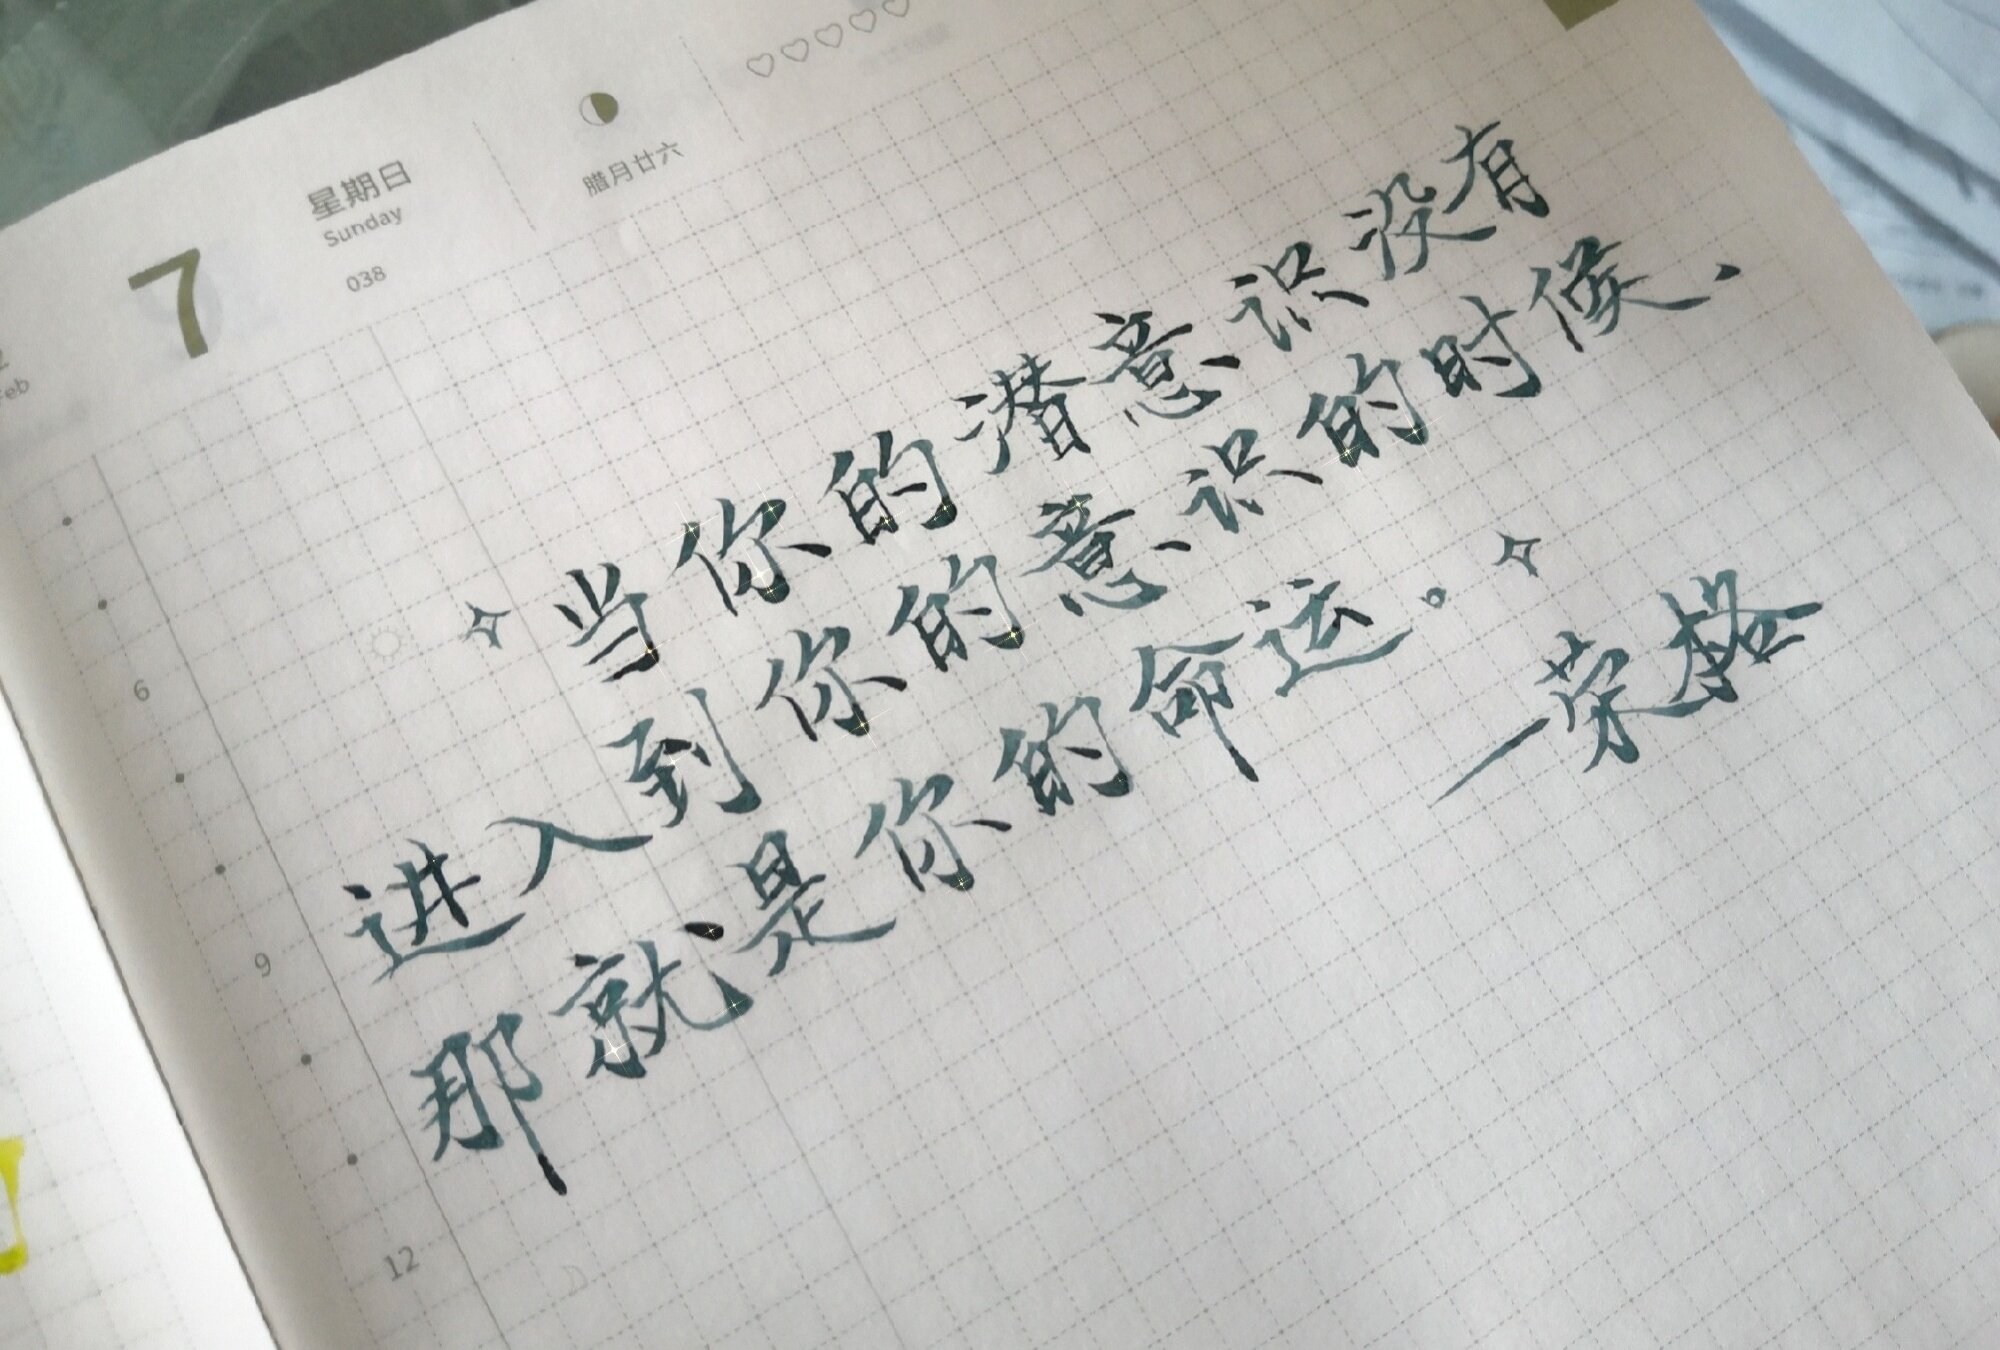 2
Feb
7
星期日
Sunday
038
腊月廿六
当你的潜意识没有
进入到你的意识的时候、
那就是你的命运。
—荣格
6
9
12